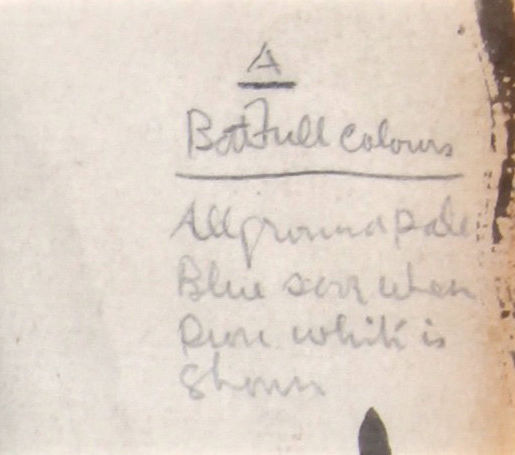 A
Full colours
All ground pale
Blue when
Pure white is
Shown